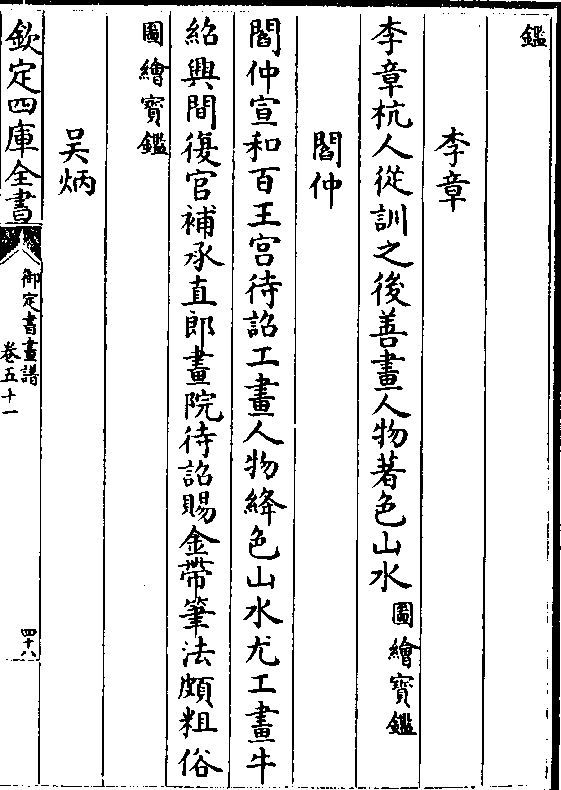 鑑
李章
李章杭人從訓之後善畫人物著色山水圖繪寳鑑
閻仲
閻仲宣和百王宫待詔工畫人物絳色山水尤工畫牛
紹興間復官補承直郎畫院待詔賜金帶筆法頗粗俗
圖繪寳鑑
吴炳
欽定四庫全書
御定書畫譜
卷五十一
四十八